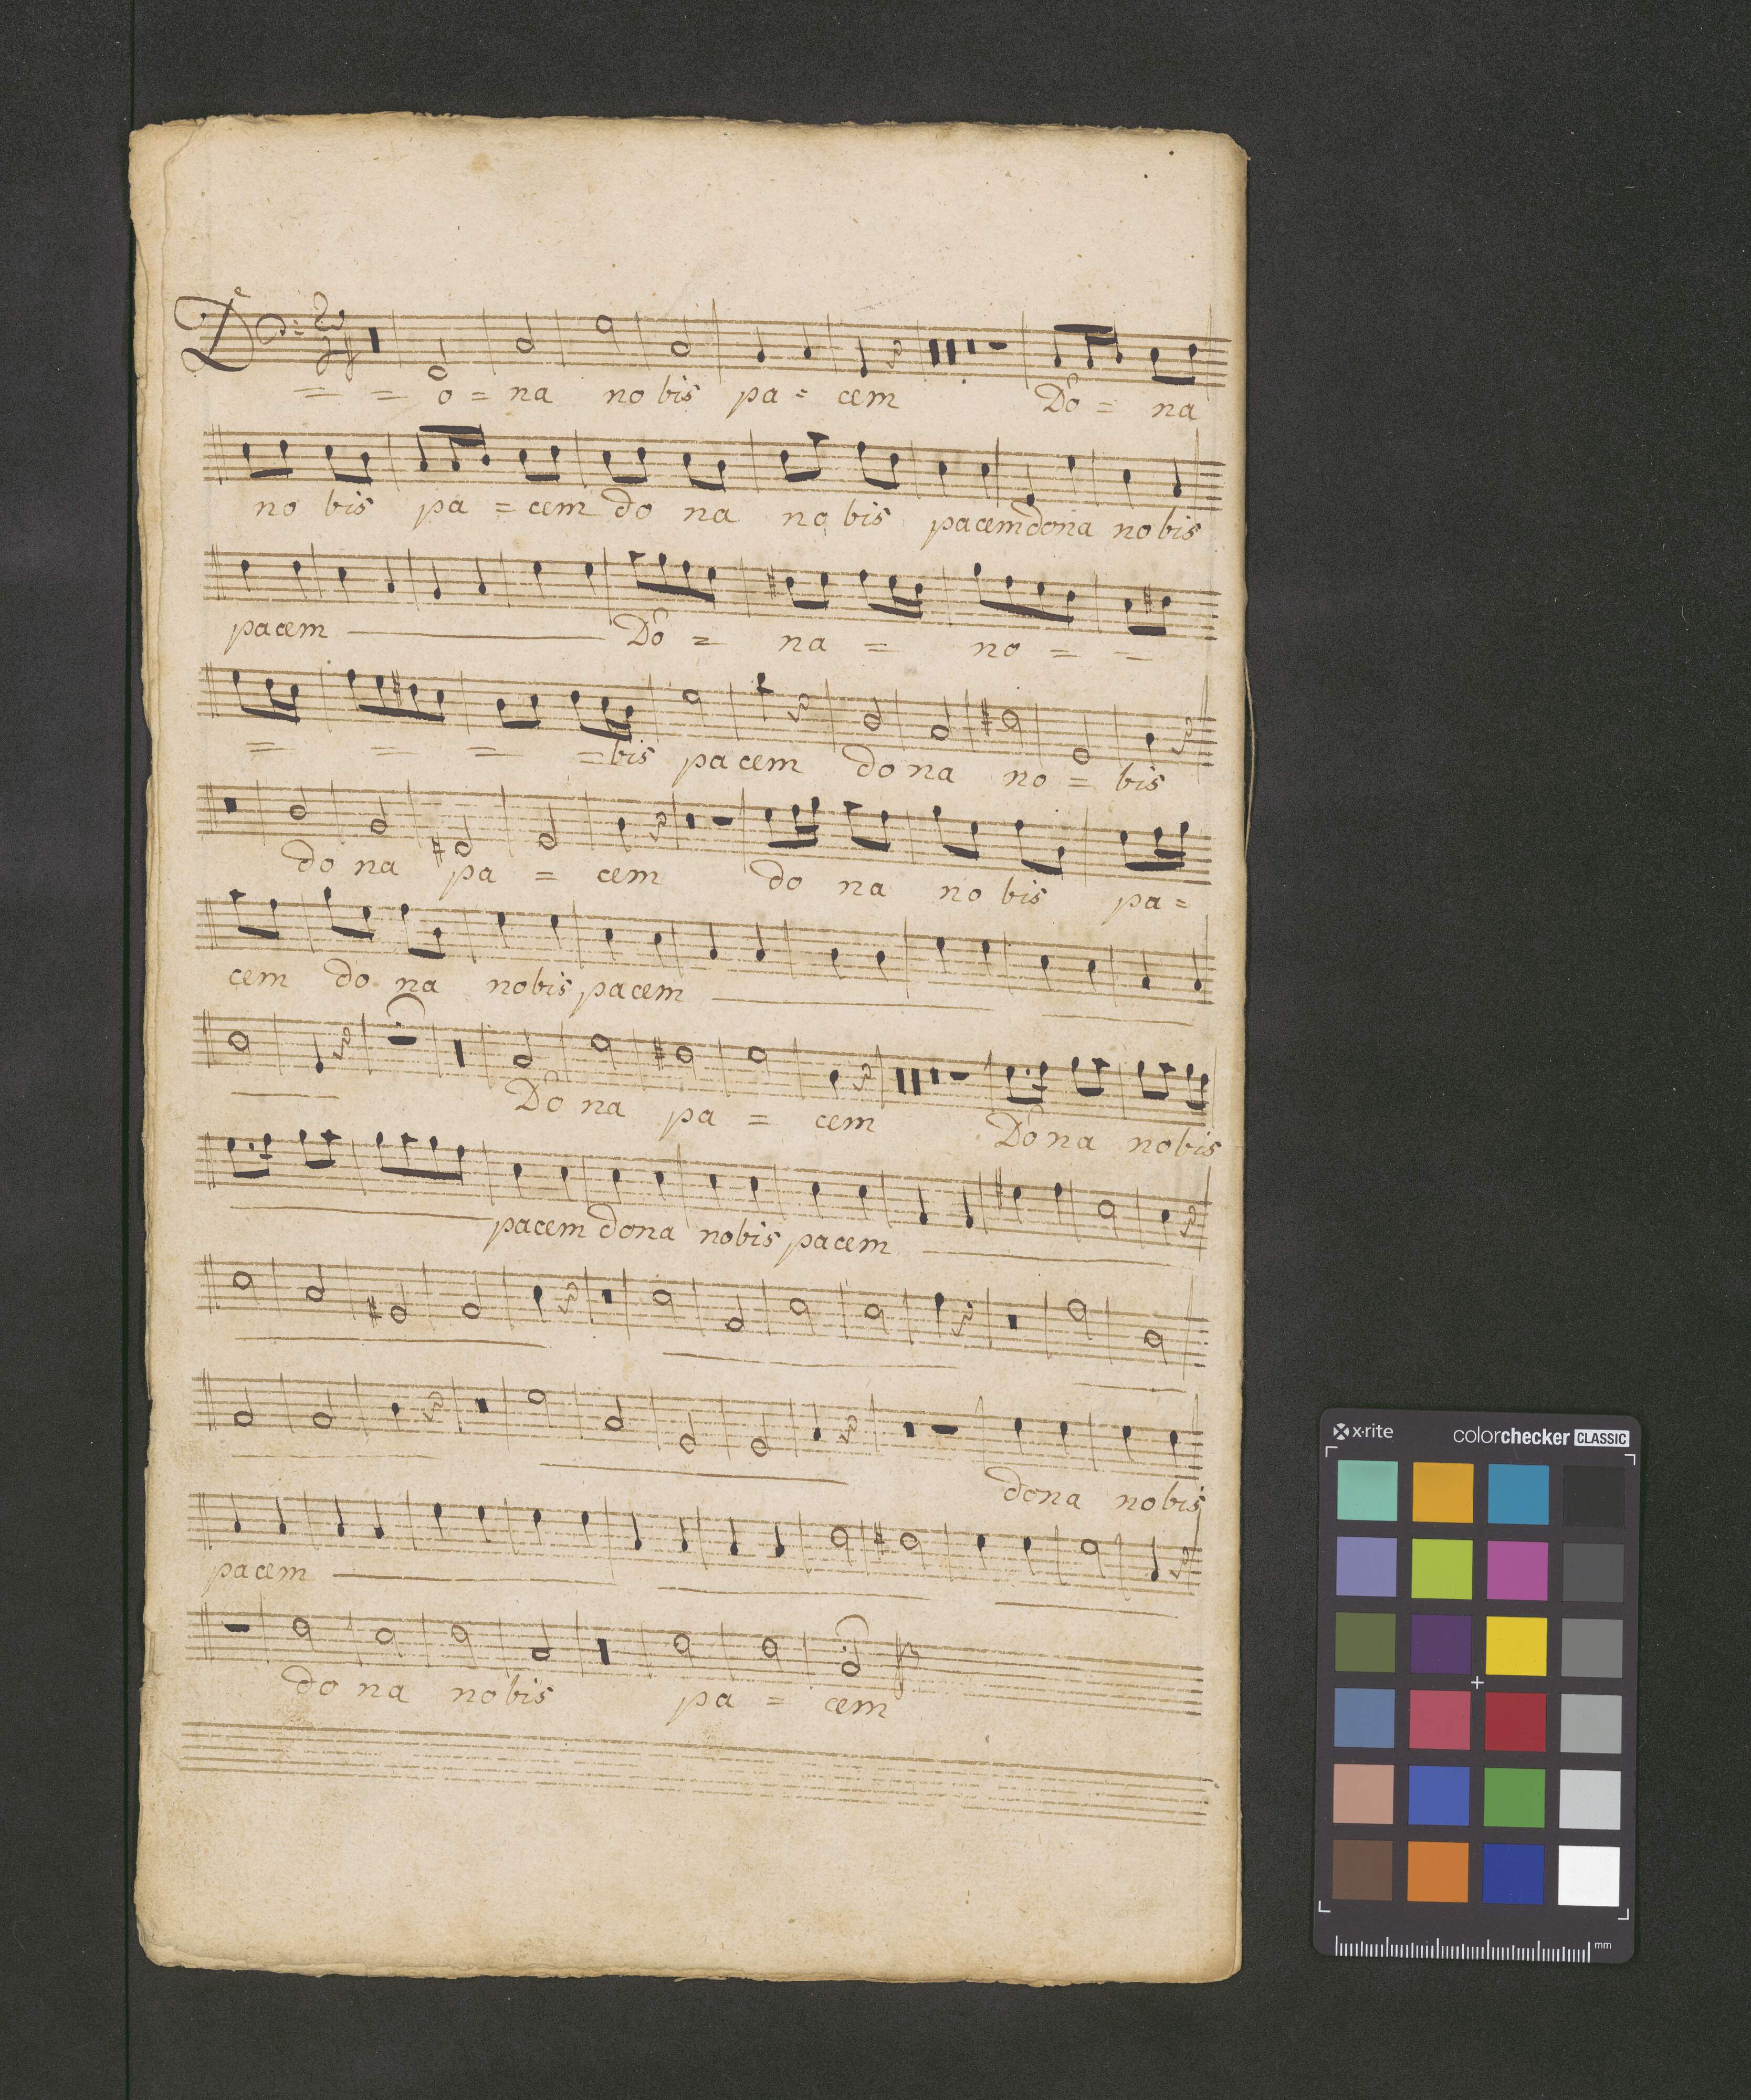 D = = o = na no bis pa = cem Do = na
no bis pa = cem do na no bis pacem dona no bis
pacem Do = na = no = =
= = = = bis pa cem do na no = bis
do na pa = cem do na no bis pa =
cem do na nobis pacem
Do na pa = cem Dona nobis
pacem dona nobis pacem
dona nobis
pacem
do na no bis pa = cem
x·rite colorchecker CLASSIC
mm